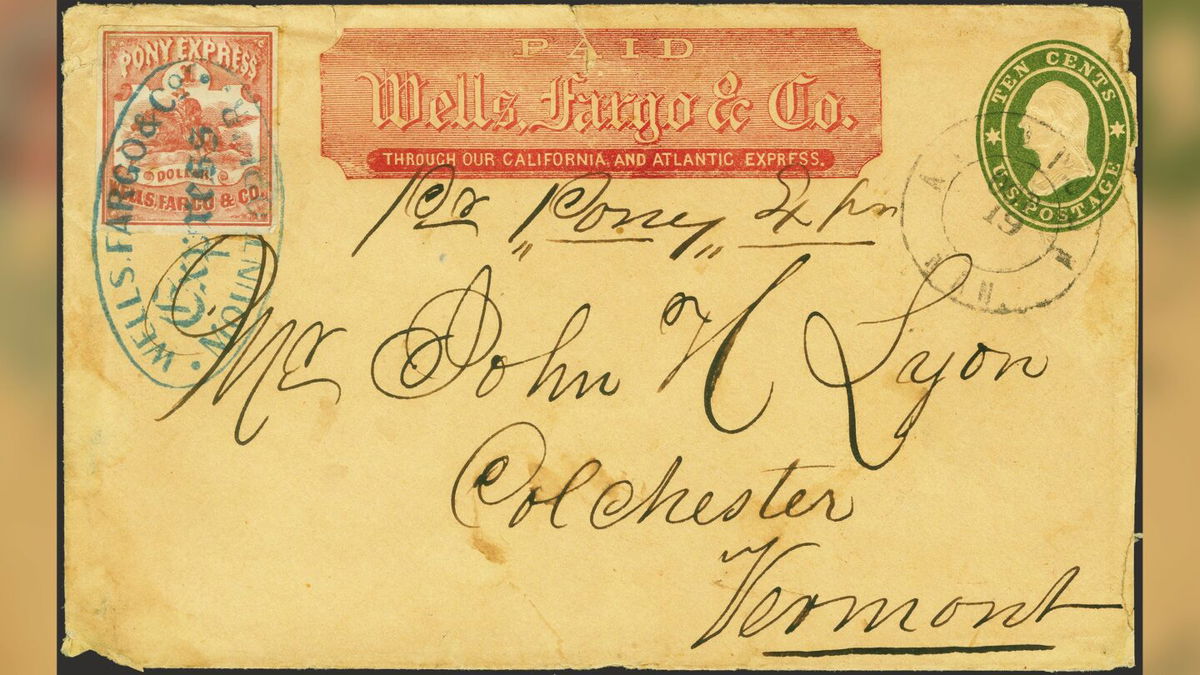 PONY EXPRESS
DOLLAR
WELLS, FARGO & CO.
WELLS, FARGO & Co.
Express
PAID
Wells, Fargo & Co.
THROUGH OUR CALIFORNIA, AND ATLANTIC EXPRESS.
TEN CENTS
U.S. POSTAGE
19
Pr "Poney" Exprs
Mr John H Lyon
Colchester
Vermont